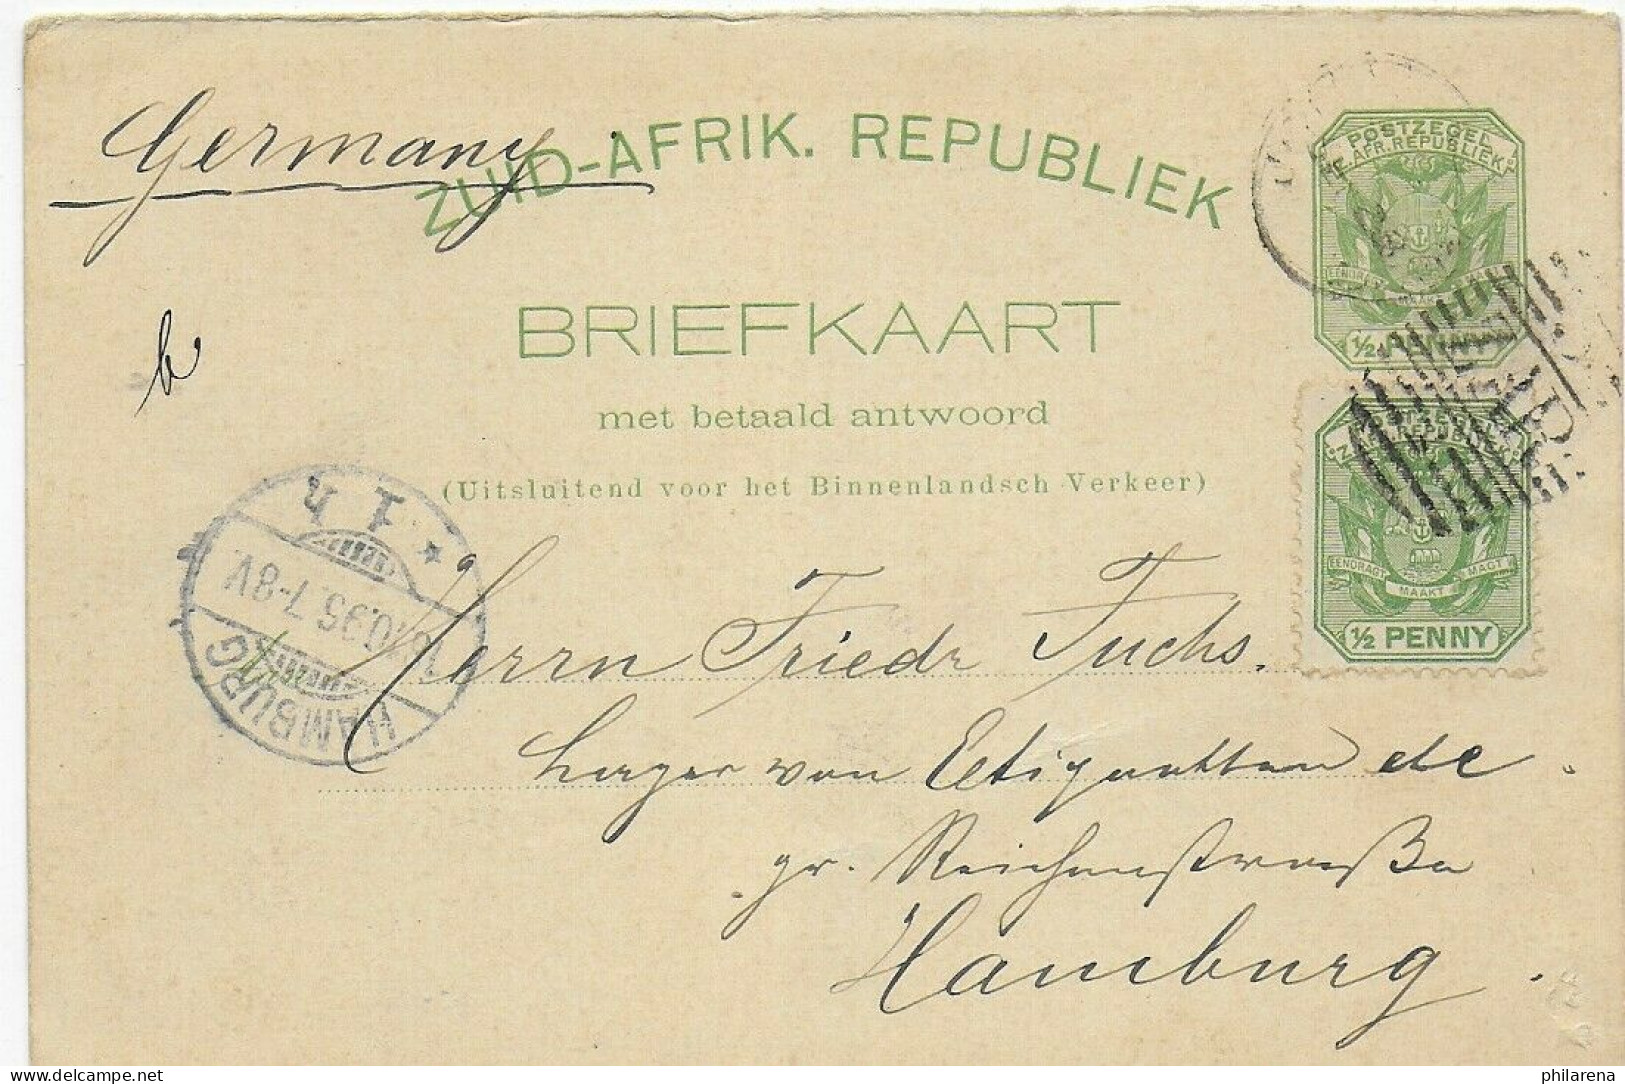 Germany
ZUID-AFRIK. REPUBLIEK
BRIEFKAART
met betaald antwoord
(Uitsluitend voor het Binnenlandsch Verkeer)
POSTZEGEL
Z. AFR. REPUBLIEK
EENDRAGT MAAKT MAGT
1/2 PENNY
POSTZEGEL
Z. AFR. REPUBLIEK
EENDRAGT MAAKT MAGT
1/2 PENNY
HAMBURG
7-8V.
* 1 h
Herrn Friedr Fuchs.
Lager von Etiquetten etc.
gr. Reichenstraße
Hamburg.
delcampe.net
philarena